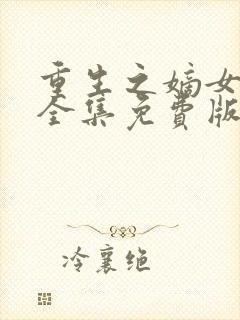 重生之嫡女
全集免费版
冷襄绝